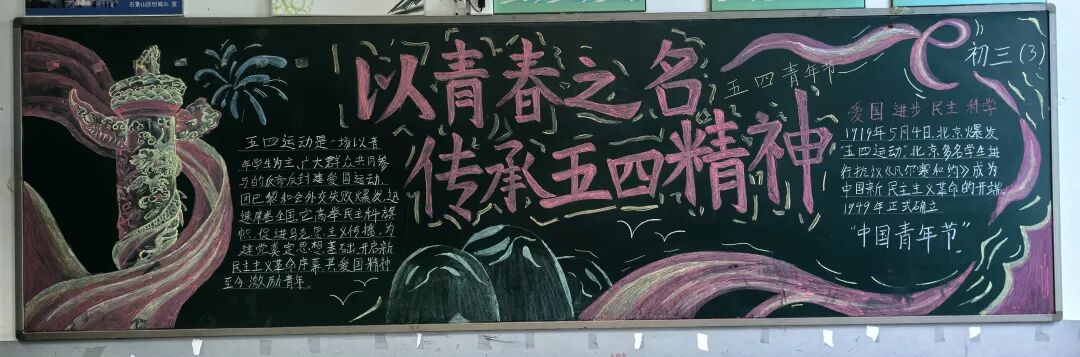 石景山区创城办 宣
以青春之名
五四青年节
传承五四精神
初三(3)
五四运动是一场以青
年学生为主,广大群众共同参
与的反帝反封建爱国运动.
因巴黎和会外交失败爆发,迅
速席卷全国,它高举民主科旗
帜,促进马克思主义传播,为
建党奠定思想基础,开启新
民主主义革命序幕,其爱国精神
至今激励青年.
爱国 进步 民主 科学
1919年5月4日,北京爆发
"五四运动".北京多名学生进
行抗议《凡尔赛和约》成为
中国新民主主义革命的开端.
1949年正式确立
"中国青年节"